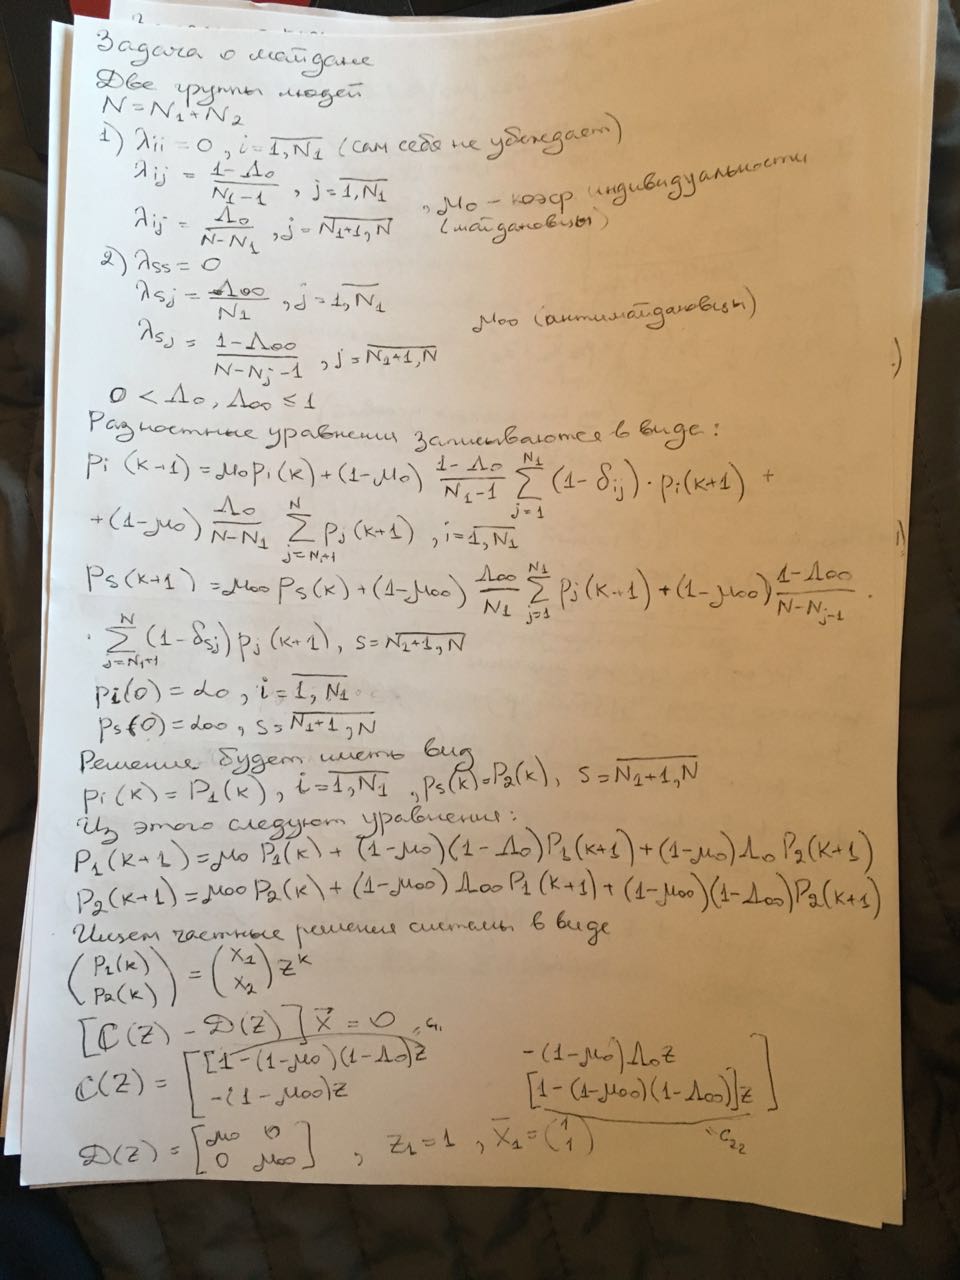 Задача о майдане
Две группы людей
N = N₁ + N₂
1) λii = 0, i = 1,N₁ (сам себя не убеждает)
λij = (1-Λ₀)/(N₁-1), j = 1,N₁
, μ₀ - коэф индивидуальности (майдановцы)
λij = Λ₀/(N-N₁), j = N₁+1,N
2) λss = 0
λsj = Λ₀₀/N₁, j = 1,N₁
μ₀₀ (антимайдановцы)
λsj = (1-Λ₀₀)/(N-Nj-1), j = N₁+1,N
0 < Λ₀, Λ₀₀ ≤ 1
Разностные уравнения записываются в виде:
pi(k+1) = μ₀pi(k) + (1-μ₀) (1-Λ₀)/(N₁-1) Σ_{j=1}^{N₁} (1-δij) · pi(k+1) +
+ (1-μ₀) Λ₀/(N-N₁) Σ_{j=N₁+1}^{N} pj(k+1), i = 1,N₁
ps(k+1) = μ₀₀ps(k) + (1-μ₀₀) Λ₀₀/N₁ Σ_{j=1}^{N₁} pj(k+1) + (1-μ₀₀) (1-Λ₀₀)/(N-Nj-1) ·
· Σ_{j=N₁+1}^{N} (1-δsj) pj(k+1), s = N₁+1,N
pi(0) = α₀, i = 1,N₁
ps(0) = α₀₀, s = N₁+1,N
Решение будет иметь вид
pi(k) = P₁(k), i = 1,N₁, ps(k) = P₂(k), s = N₁+1,N
Из этого следуют уравнения:
P₁(k+1) = μ₀P₁(k) + (1-μ₀)(1-Λ₀)P₁(k+1) + (1-μ₀)Λ₀P₂(k+1)
P₂(k+1) = μ₀₀P₂(k) + (1-μ₀₀)Λ₀₀P₁(k+1) + (1-μ₀₀)(1-Λ₀₀)P₂(k+1)
Ищем частные решения системы в виде
(P₁(k) P₂(k)) = (x₁ x₂) z^k
[C(z) - D(z)] x̄ = 0
C(z) = [[1-(1-μ₀)(1-Λ₀)]z   -(1-μ₀)Λ₀z
-(1-μ₀₀)z   [1-(1-μ₀₀)(1-Λ₀₀)]z]
C₂₂
D(z) = [μ₀ 0 0 μ₀₀], z₁ = 1, x̄₁ = (1 1)